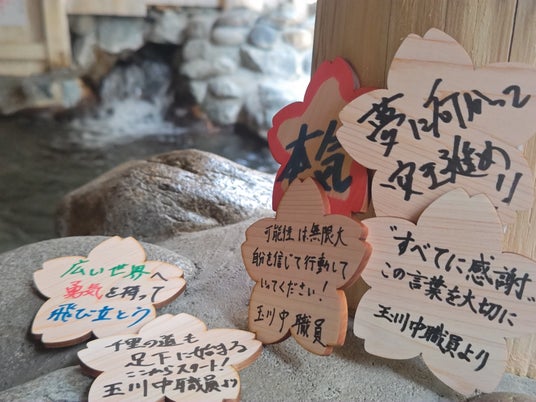 本気
夢に向かって
突き進め！
広い世界へ
勇気を持って
飛び立とう
千里の道も
足下に始まる
ここからスタート！
玉川中職員より
可能性は無限大
自分を信じて行動して
いってください！
玉川中職員
"すべてに感謝"
この言葉を大切に
玉川中職員より